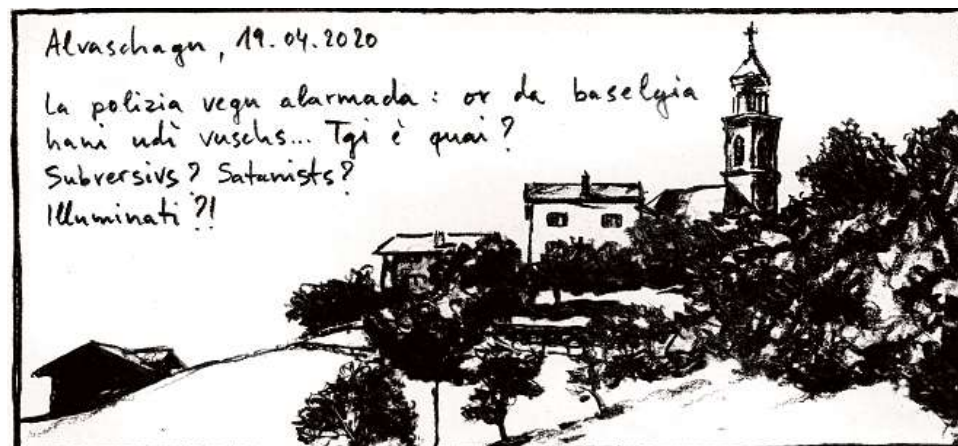 Alvaschagn, 19.04.2020
La polizia vegn alarmada: or da baselgia
hani udì vuschs... Tgi è quai?
Subversivs? Satanists?
Illuminati?!